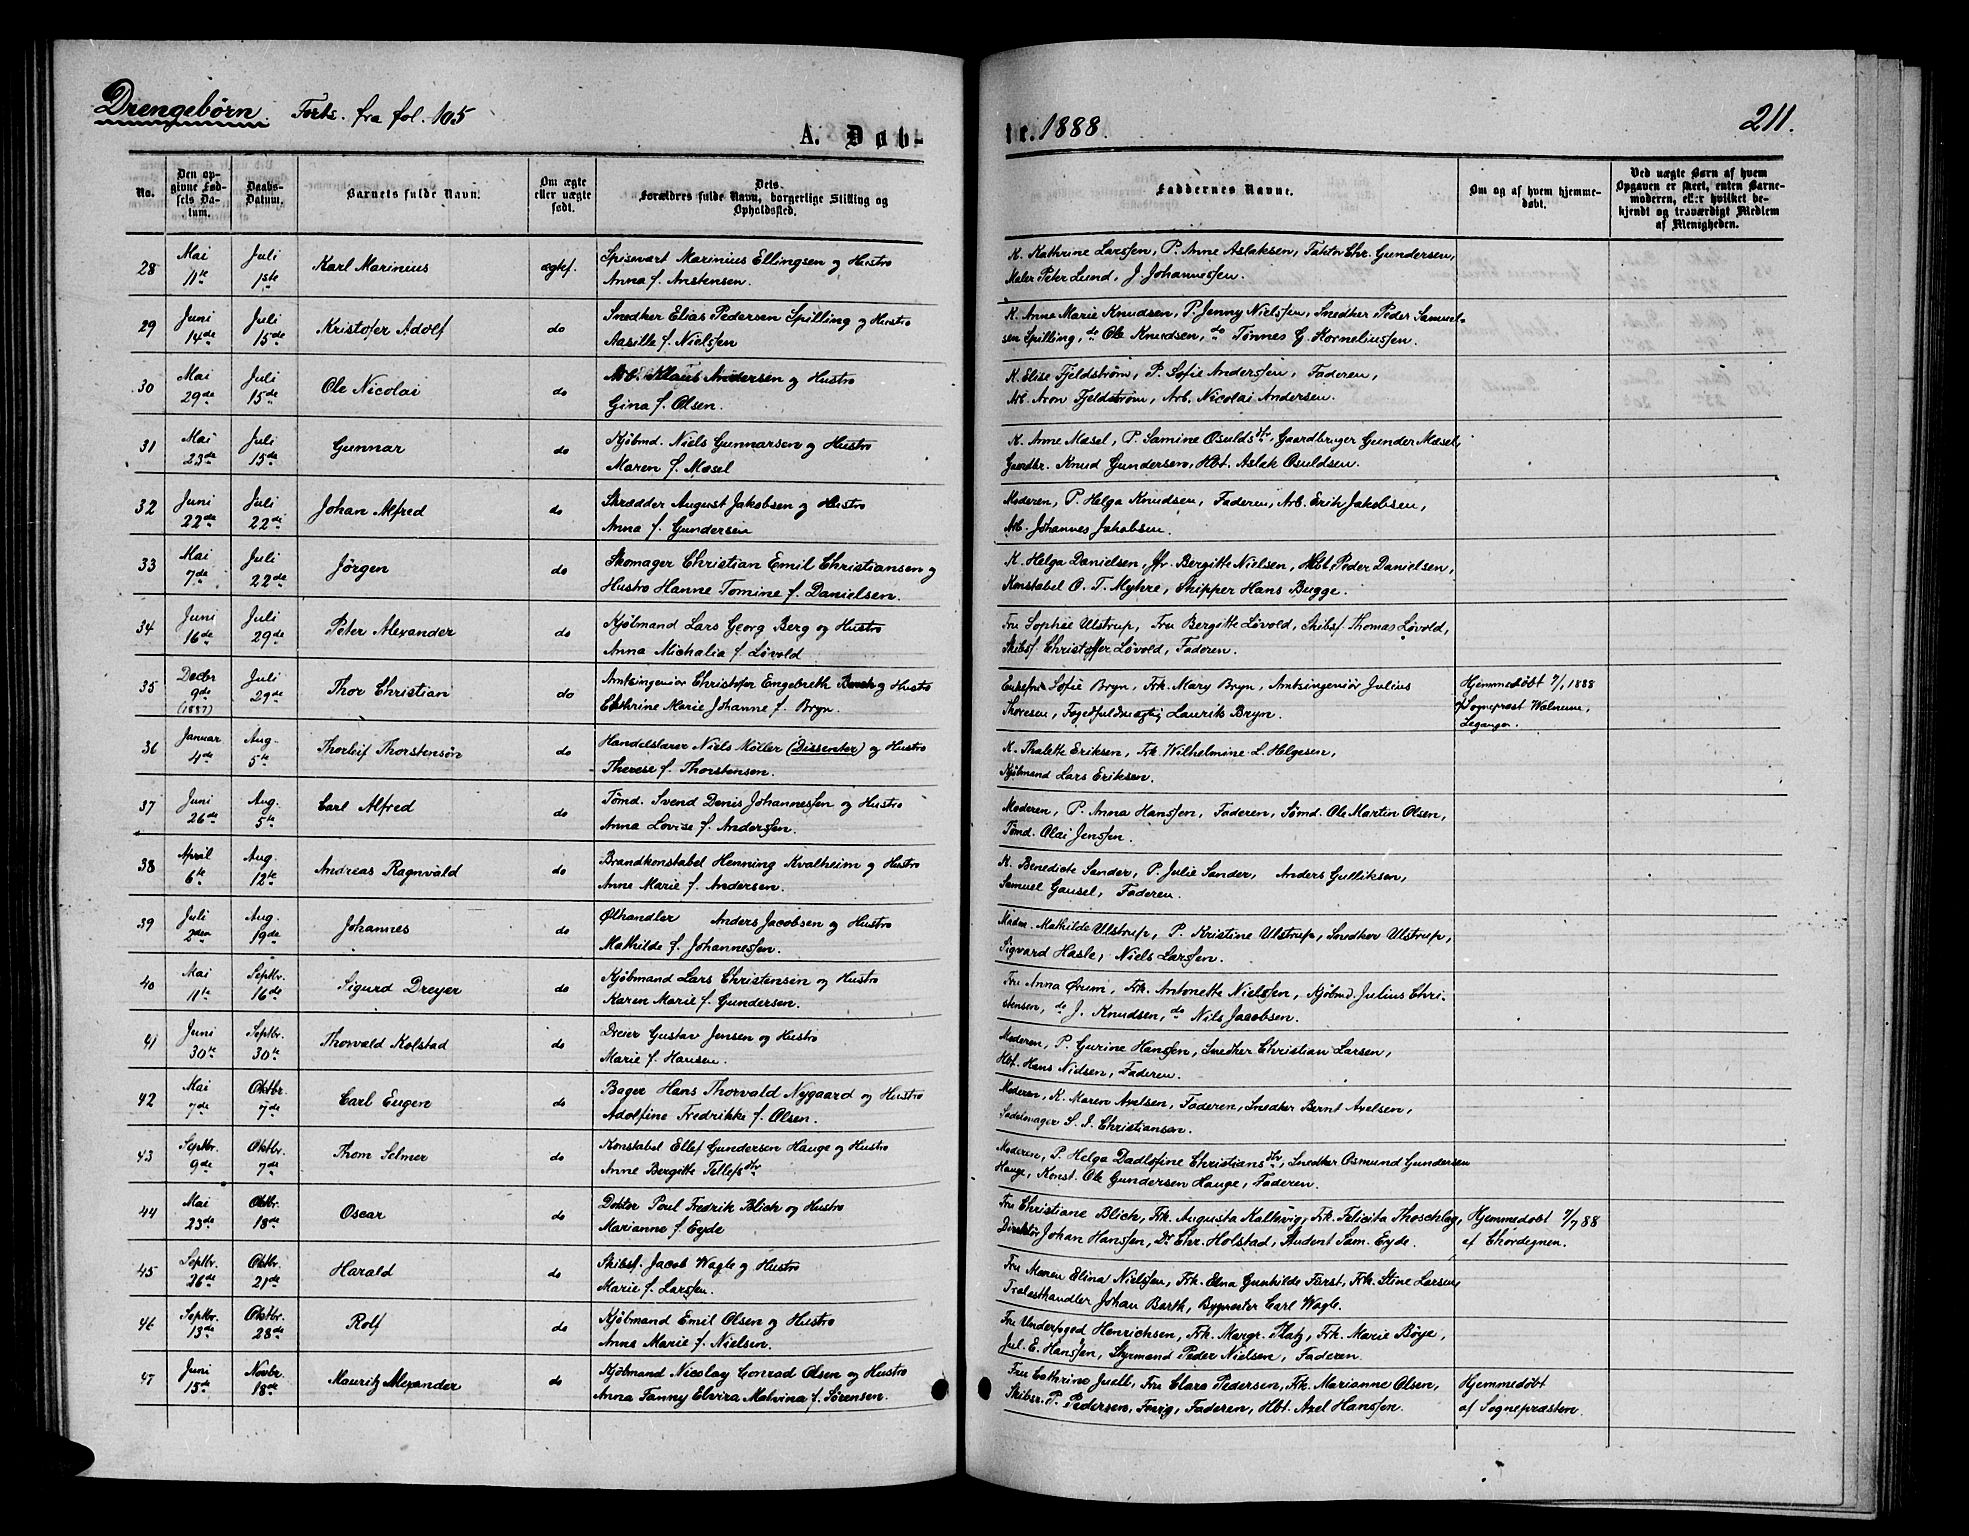 Drengebørn. Forts. fra fol. 105
A. Døb-
te. 1888.
211.
No.
Den opgivne Fødsels Datum.
Daabs-Datum.
Barnets fulde Navn.
Om ægte eller uægte født.
Dets Forældres fulde Navn, borgerlige Stilling og Opholdssted.
Faddernes Navne.
Om og af hvem hjemmedøbt.
Ved uægte Børn af hvem Opgaven er skeet, enten Barnemoderen, eller hvilket bekjendt og troværdigt Medlem af Menigheden.
28 Mai 11te Juli 1ste Karl Marinius ægtef. Spisevært Marinius Ellingsen og Hustro
Anna f. Anstensen.
K. Kathrine Larssen, P. Anne Aslaksen, Faktor Chr. Gundersen,
Maler Peter Lund, J. Johannessen.
29 Juni 14de Juli 15de Kristofer Adolf do Snedker Elias Pedersen Spilling og Hustro
Aasille f. Nielssen
K. Anne Marie Knudsen, P. Jenny Nielssen, Snedker Peder Samuel-
sen Spilling, do Ole Knudsen, do Tønnes G. Korneliussen.
30 Mai 29de Juli 15de Ole Nicolai do Arb. Klaus Andersen og Hustro
Gina f. Olsen.
K. Elise Fjeldstrøm, P. Sofie Anderssen, Faderen,
Arb. Aron Fjeldstrøm, Arb. Nicolai Andersen.
31 Mai 23de Juli 15de Gunnar do Kjøbmd. Niels Gunnarsen og Hustro
Maren f. Mæsel
K. Anne Mæsel, P. Samine Osuldsdtr, Gaardbruger Gunder Mæsel,
Gaardbr. Knud Gundersen, Hbt. Aslak Osuldsen.
32 Juni 22de Juli 22de Johan Alfred do Skrædder August Jakobsen og Hustro
Anna f. Gundersen
Moderen, P. Helga Knudsen, Faderen, Arb. Erik Jakobsen,
Arb. Johannes Jakobsen.
33 Mai 7de Juli 22de Jörgen do Skomager Christian Emil Christiansen og
Hustro Hanne Tomine f. Danielsen.
K. Helga Danielsen, Fr. Bergitte Nielsen, Hbt. Peder Danielsen,
Konstabel O. T. Myhre, Skipper Hans Bugge.
34 Juni 16de Juli 29de Peter Alexander do Kjøbmand Lars Georg Berg og Hustro
Anna Michalia f. Løvold
Fru Sophie Ulstrup, Fru Bergitte Løvold, Skibsf. Thomas Løvold,
Skibsf. Christoffer Løvold, Faderen.
35 Decbr 9de (1887) Juli 29de Thor Christian do Amtsingeniør Christofer Engebreth og Hustro
Cathrine Marie Johanne f. Bryn.
Enkefru Sofie Bryn, Frk. Mary Bryn, Amtsingeniør Julius
Thoresen, Fogedfuldmægtig Laurits Bryn.
Hjemmedøbt 7/1 1888
af Sogneprest Walnum,
Leganger.
36 Januar 4de Aug. 5te Thorleif Thorstensøn do Handelslærer Niels Møller (Dissenter) og Hustro
Therese f. Thorstensen.
K. Thalette Eriksen, Frk. Wilhelmine L. Helgesen,
Kjøbmand Lars Eriksen.
37 Juni 26de Aug. 5te Carl Alfred do Tømd. Svend Denis Johannessen og Hustro
Anna Lovise f. Anderssen.
Moderen, P. Anna Hanssen, Faderen, Tømd. Ole Martin Olsen,
Tømd. Olai Jenssen.
38 April 6te Aug. 12te Andreas Ragnvald do Brandkonstabel Henning Kvalheim og Hustro
Anne Marie f. Andersen.
K. Benedicte Sander, P. Julie Sander, Anders Gulliksen,
Samuel Gausel, Faderen.
39 Juli 2den Aug. 19de Johannes do Ølhandler Anders Jacobsen og Hustro
Mathilde f. Johannessen.
Madm. Mathilde Ulstrup, P. Kristine Ulstrup, Snedker Ulstrup,
Sigvard Hasle, Niels Larssen.
40 Mai 11te Septbr. 16de Sigurd Dreyer do Kjøbmand Lars Christensen og Hustro
Karen Marie f. Gundersen.
Fru Anna Ørum, Frk. Antonette Nielssen, Kjøbmd. Julius Chri-
stensen, do J. Knudsen, do Nils Jacobsen.
41 Juni 30te Septbr. 30te Thorvald Kolstad do Dreier Gustav Jensen og Hustro
Marie f. Hansen.
Moderen, P. Gurine Hanssen, Snedker Christian Larsen,
Hbt. Hans Nielsen, Faderen.
42 Mai 7de Oktbr. 7de Carl Eugen do Bager Hans Thorvald Nygaard og Hustro
Adolfine Fredrikke f. Olsen.
Moderen, K. Maren Axelsen, Faderen, Snedker Bernt Axelsen,
Sadelmager S. I. Christiansen.
43 Septbr. 9de Oktbr. 7de Thom Selmer do Konstabel Ellef Gundersen Hauge og Hustro
Anne Bergitte Tellefsdtr
Moderen, P. Helga Dadlofine Christiansdtr, Snedker Osmund Gundersen
Hauge, Konst. Ole Gundersen Hauge, Faderen.
44 Mai 23de Oktbr. 18de Oscar do Doktor Poul Fredrik Blich og Hustro
Marianne f. Eyde
Fru Christiane Blich, Frk. Augusta Kallevig, Frk. Felicita Thoschlag,
Direktør Johan Hanssen, Dr Chr. Holstad, Student Sam. Eyde.
Hjemmedøbt 7/7 88
af Chordegnen.
45 Septbr. 26de Oktbr. 21de Harald do Skibsf. Jacob Wagle og Hustro
Marie f. Larssen.
Fru Maren Elina Nielssen, Frk. Elna Gunhilde Forst, Frk. Stine Larsen,
Trælasthandler Johan Barth, Bygmester Carl Wagle.
46 Septbr. 13de Oktbr. 28de Rolf do Kjøbmand Emil Olsen og Hustro
Anna Marie f. Nielsen.
Fru Underfoged Henrichsen, Frk. Margr. Platz, Frk. Marie Böye,
Jul. E. Hanssen, Styrmand Peder Nielsen, Faderen.
47 Juni 15de Novbr. 18de Mauritz Alexander do Kjøbmand Nicolay Conrad Olsen og Hustro
Anna Fanny Elvira Malvina f. Sørensen.
Fru Cathrine Juell, Fru Clara Pedersen, Frk. Marianne Olsen,
Skibsr. P. Pedersen, Faderen, Hbt. Axel Hanssen.
Hjemmedøbt
af Sognepræsten.